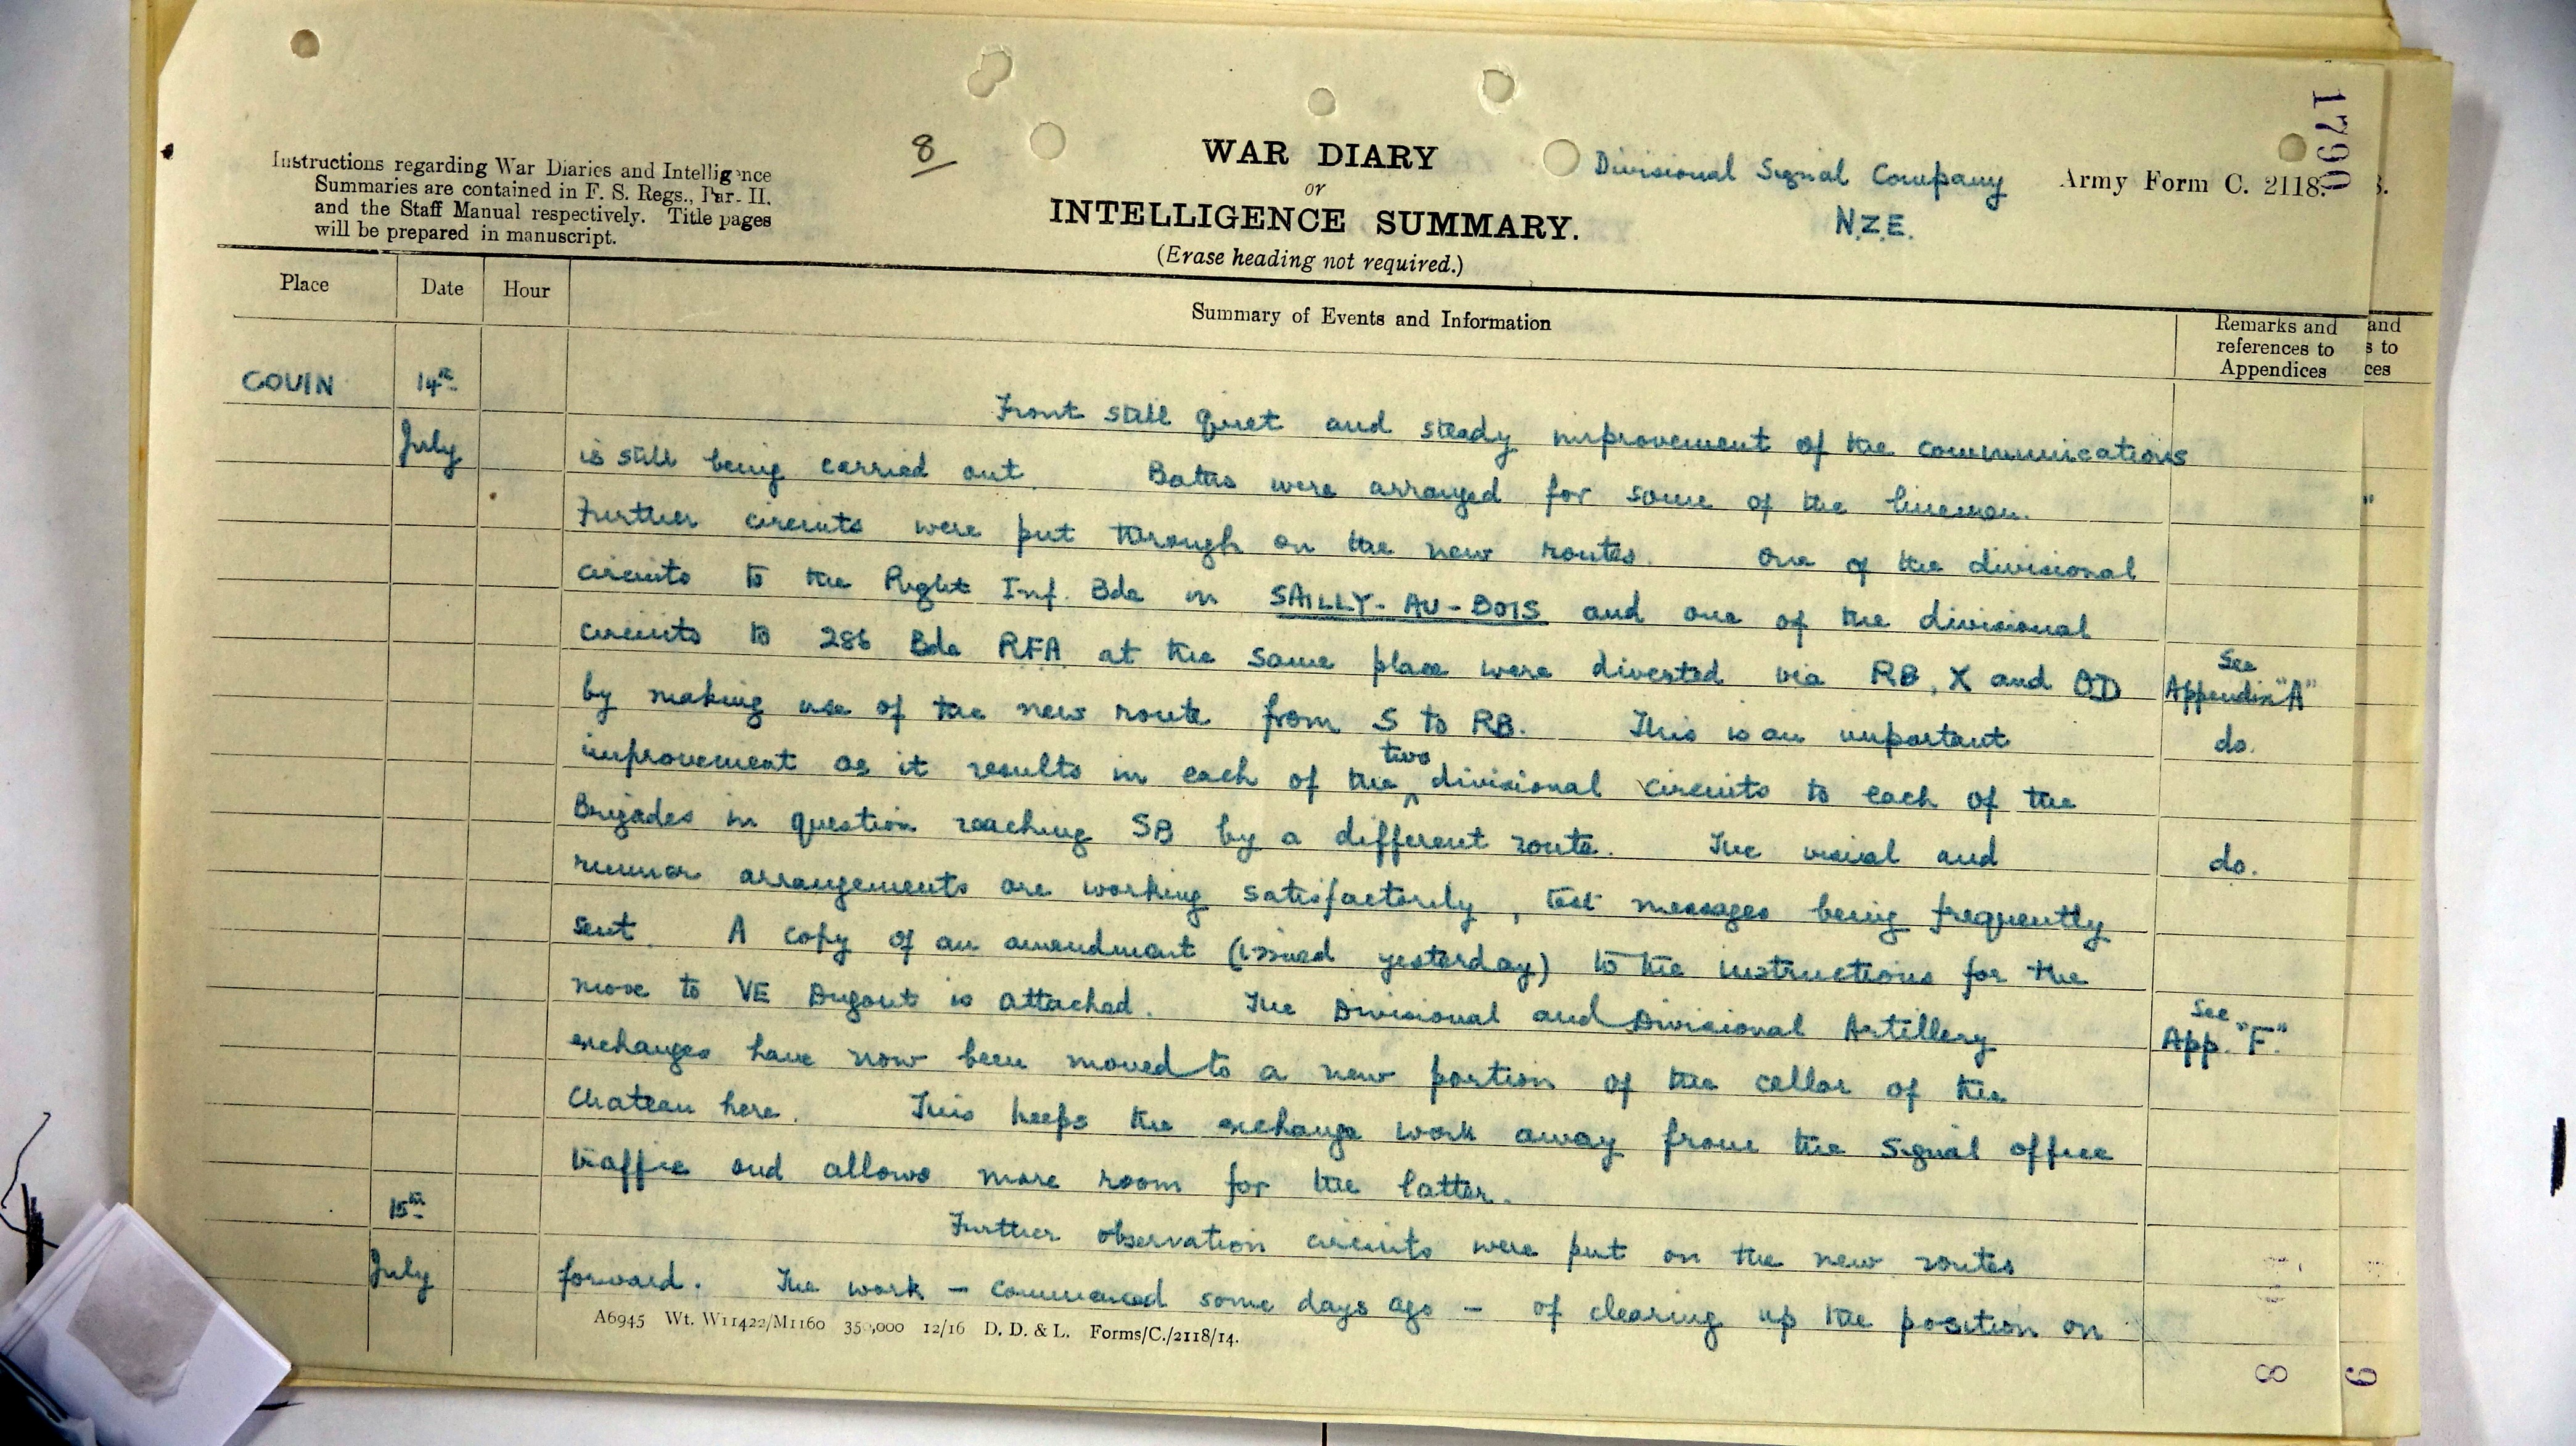 1790
Instructions regarding War Diaries and Intelligence
Summaries are contained in F. S. Regs., Par. II.
and the Staff Manual respectively. Title pages
will be prepared in manuscript.
8
WAR DIARY
or
INTELLIGENCE SUMMARY.
(Erase heading not required.)
Divisional Signal Company
N.Z.E.
Army Form C. 2118.
Place Date Hour Summary of Events and Information Remarks and
references to
Appendices
and
s to
ces
COUIN 14th
July
Front still quiet and steady improvement of the communications
is still being carried out. Baths were arranged for some of the linemen.
Further circuits were put through on the new routes. One of the divisional
circuits to the Right Inf. Bde in SAILLY-AU-BOIS and one of the divisional
circuits to 286 Bde RFA at the same place were diverted via RB, X and OD See Appendix "A"
by making use of the new route from S to RB. This is an important do.
improvement as it results in each of the two divisional circuits to each of the
Brigades in question reaching SB by a different route. The visual and do.
runner arrangements are working satisfactorily, test messages being frequently
sent. A copy of an amendment (issued yesterday) to the instructions for the
move to VE Dugout is attached. The Divisional and Divisional Artillery See App. "F."
exchanges have now been moved to a new portion of the cellar of the
Chateau here. This keeps the exchange work away from the Signal office
traffic and allows more room for the latter.
15th
July
Further observation circuits were put on the new routes
forward. The work – commenced some days ago – of clearing up the position on
A6945 Wt. W11422/M1160 350,000 12/16 D. D. & L. Forms/C./2118/14.
8
9